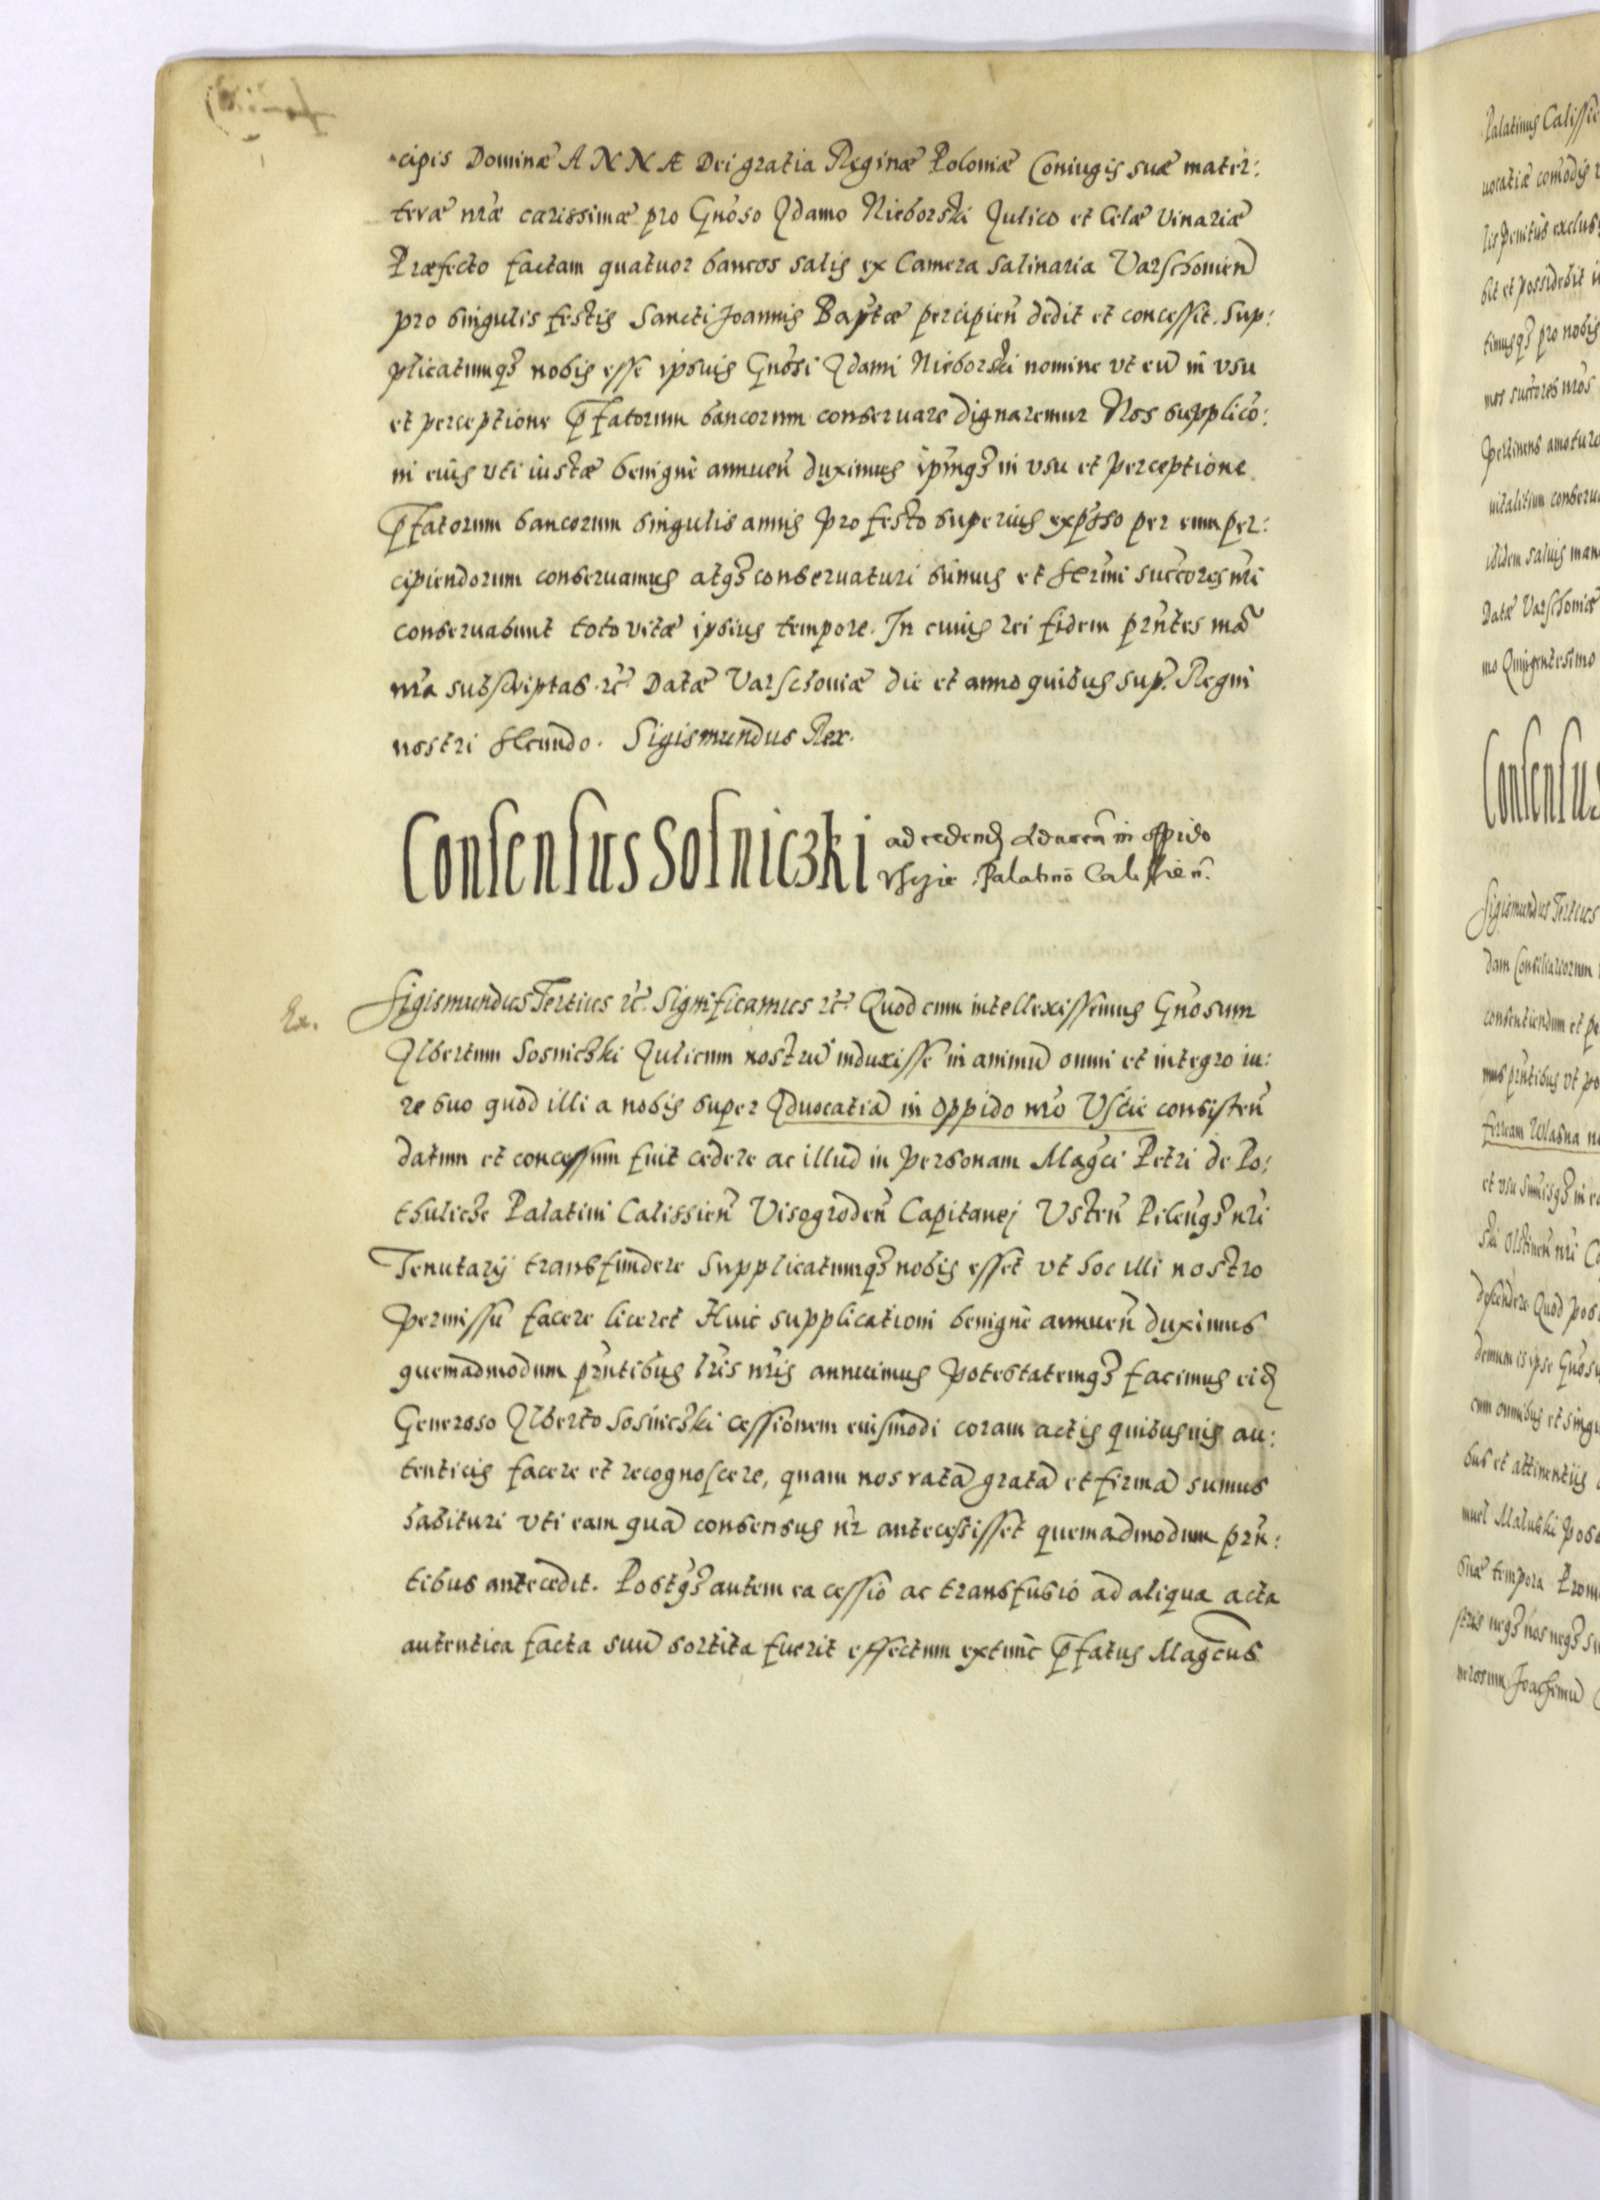 cipis Dominæ ANNÆ Dei gratia Reginæ Poloniæ Coniugis suæ mater:
teræ nræ carissimæ pro Gnoso Adamo Nieborski Aulico et Celæ Vinariæ
Præfecto factam quatuor bancos salis ex Camera Salinaria Varschouien
pro singulis festis Sancti Joannis Baptæ percipien dedit et concessit. Sup:
plicatumq3 nobis esse ipsius Gnosi Adami Nieborski nomine vt eu in vsu
et perceptione pfatorum bancorum conseruare dignaremur Nos supplico:
ni eius vti iustæ benigne annuen duximus ipmq3 in vsu et perceptione
pfatorum bancorum singulis annis pro festo superius expsso per eum per:
cipiendorum conseruamus atq3 conseruaturi sumus et Sermi succores nri
conseruabunt toto vitæ ipsius tempore. In cuius rei fidem prntes ma
nra subscriptas rc Datæ Varschouiæ die et anno quibus sup. Regni
nostri Secundo. Sigismundus Rex.
Consensus Sosniczki ad cedend Aduocan in oppido
Vscie Palatino Calissien.
Ex. Sigismundus Tertius rc. Significamus rc Quod cum intellexissemus Gnosum
Albertum Sosniczki Aulicum nostru induxisse in animu omni et integro iu:
re suo quod illi a nobis super Aduocatia in oppido nro Vscie consisten
datum et concessum fuit cedere ac illud in personam Magci Petri de Po:
thulicze Palatini Calissien Visogroden Capitanej Vsten Pilenq3 nri
Tenutarij transfundere Supplicatumq3 nobis esset vt hoc illi nostro
permissu facere liceret Huic supplicationi benigne annuen duximus
quemadmodum prntibus lris nris annuimus potestatemq3 facimus eid
Generoso Alberto Sosniczki cessionem eiusmodi coram actis quibusuis au:
tenticis facere et recognoscere, quam nos rata grata et firma sumus
habituri vti eam qua consensus nr antecessisset quemadmodum prn:
tibus antecedit. Postq3 autem ea cessio ac transfusio ad aliqua acta
autentica facta suu sortita fuerit effectum extunc pfatus Magcus
Palatinus
uocatiæ comodis
lis penitus exclus
bit et possidebit
timusq3 pro nobis
nos succores nros
pertinens
uitalitium conseru
ibidem saluis
Datæ Varschouiæ
mo Quingentesimo
Consensus
Sigismundus Tertius
dam Consiliariorum
consentiendum et
mus prntibus vt
et vsu
Quod
demum is ipse Gnosu
cum omnibus et singu
bus et attinentijs
suæ tempora
nerosum Joachimu